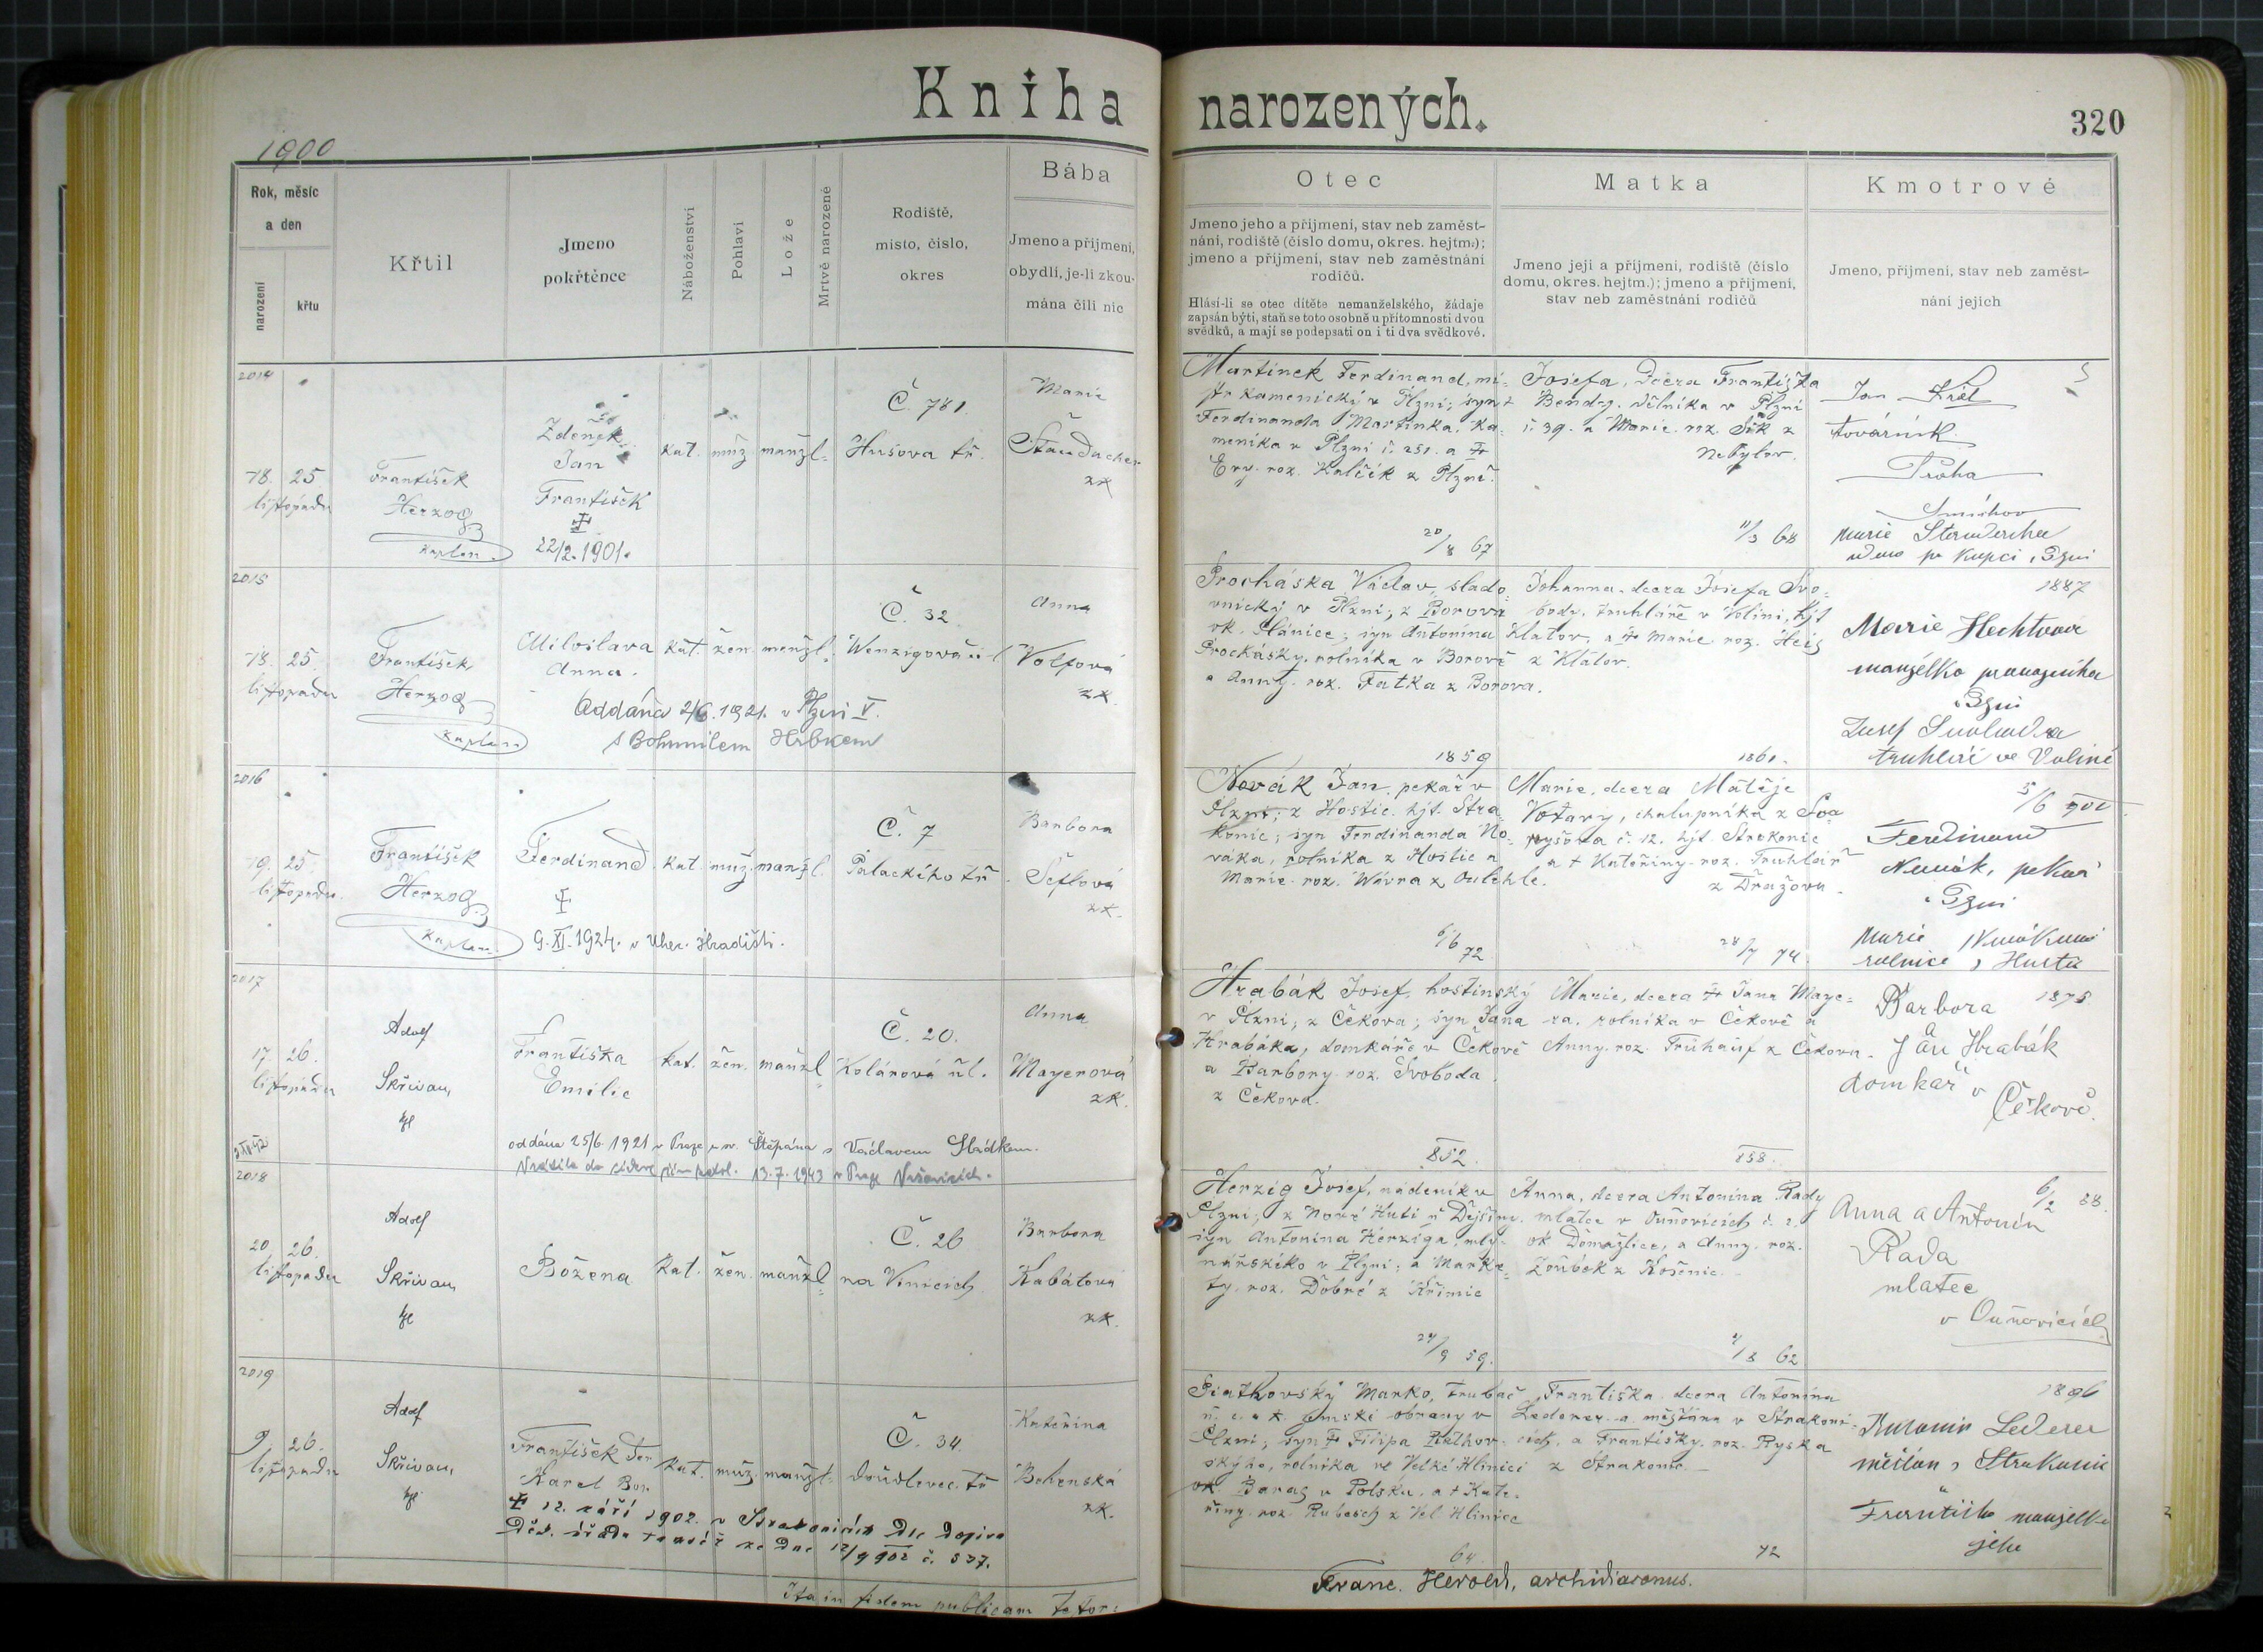 Kniha narozených.
320
1900
Rok, měsíc
a den
narození
křtu
Křtil
Jmeno
pokřtěnce
Náboženství
Pohlaví
Lože
Mrtvě narozené
Rodiště,
místo, číslo,
okres
Bába
Jmeno a příjmení,
obydlí, je-li zkou-
mána čili nic
Otec
Jmeno jeho a příjmení, stav neb zaměst-
nání, rodiště (číslo domu, okres. hejtm.);
jmeno a příjmení, stav neb zaměstnání
rodičů.
Hlásí-li se otec dítěte nemanželského, žádaje
zapsán býti, staň se toto osobně u přítomnosti dvou
svědků, a mají se podepsati on i ti dva svědkové.
Matka
Jmeno její a příjmení, rodiště (číslo
domu, okres. hejtm.); jmeno a příjmení,
stav neb zaměstnání rodičů
Kmotrové
Jmeno, příjmení, stav neb zaměst-
nání jejich
2014
18. 25.
listopadu
František
Herzog
kaplan
Zdeněk
Jan
František
22/2. 1901.
kat. muž. manžl.
Č. 781.
Husova tř.
Marie
Staudacher
zk
Martínek Ferdinand, mi-
str kamenický v Plzni; syn
Ferdinanda Martínka, ka-
meníka v Plzni č. 251. a
Evy. roz. Kalčík z Plzně.
20/8 67
Josefa, dcera Františka
Bendy. dělníka v Plzni
č. 39. a Marie. roz. Šik z
Nebylov.
11/3 68
Jan Král
továrník
Praha
Smíchov
Marie
po kupci
2015
18. 25.
listopadu
František
Herzog
kaplan
Miloslava
Anna.
kat. žen. manžl.
Č. 32.
Wenzigova
Anna
Volfová
zk.
Oddána 2/6. 1921. v Plzni V.
s Bohumilem Hrbkem
Procháska Václav, slado-
vnický v Plzni; z Borova
ok. Plánice; syn Antonína
Procházky, rolníka v Borově
a Anny. roz. Fatka z Borova.
1859
Johanna. dcera Josefa Svo-
body. truhláře v Volini, hjt
Klatov, a Marie roz. Heis
z Klatov.
1861.
1887
Marie Hechtova
manželka
Josef Svoboda
truhlář ve Volině
2016
19. 25.
listopadu.
František
Herzog
kaplan
Ferdinand
9. XI. 1924. v Uher. Hradišti.
kat. muž. manžl.
Č. 7
Palackého tř.
Barbora
Šeflová
zk.
Novák Jan, pekař v
Plzni; z Hostic. hjt. Stra-
konic; syn Ferdinanda No-
váka, rolníka z Hoštic a
Marie. roz. Wávra z
6/6 72
Marie, dcera Matěje
Votavy, chalupníka z
č. 12. hjt. Strakonic
a † Kateřiny. roz. Truhlář
z Dražova.
28/7 74.
5/6
Ferdinand
Novák, pekař
Marie Nováková
rolnice
2017
17. 26.
listopadu
Adolf
Skřivan,
Františka
Emilie
kat. žen. manžl.
Č. 20.
Kolárova ul.
Anna
Mayerová
zk.
oddána 25/6 1921 v Praze u sv. Štěpána s Václavem Sládkem.
13.7.1943 v Praze Vršovicích.
Hrabák Josef, hostinský
v Plzni; z Čékova; syn Jana
Hrabáka, domkáře v Čékově
a Barbory. roz. Svoboda
z Čékova.
852.
Marie, dcera Jana Maye-
ra. rolníka v Čékově a
Anny. roz. Frühauf z Čékova.
858.
1875
Barbora
a
Jan Hrabák
domkář v
Čékově.
2018
20 26.
listopadu
Adolf
Skřivan,
Božena
kat. žen. manžl.
Č. 26
na Vinicích
Barbora
Kabátová
zk.
Herzig Josef, nádeník v
Plzni; z Nové Huti u Dejšiny,
syn Antonína Herziga, mly-
nářského v Plzni; a Marke-
ty. roz. Dobré z Křimic
24/9 59.
Anna, dcera Antonína Rady
mlatce v Ouňovicích č. 2.
ok Domažlice, a Anny. roz.
Zoubek z Košenic.
4/3 62
6/2 88.
Anna a Antonín
Rada
mlatec
v Ouňovicích
2019
9. 26.
listopadu
Adolf
Skřivan,
František Fer
Karel Bor.
kat. muž. manžl.
Č. 34.
doudlevec. tř
Kateřina
Bohenská
zk.
12. září 1902. v Strakonicích Dle dopisu
Děk. úřadu tamtéž ze dne 12/9 902 č. 537.
Piatkovský Marko, trubač
zemské obrany v
Plzni; syn Filipa Piatkov-
ského, rolníka ve Velké Hlinici
ok. v Polsku. a † Kate-
řiny. roz. z Vel. Hlinice
64
Františka. dcera Antonína
Lederer. a měšťana v Strakoni-
cích, a Františky. roz. Ryska
z Strakonic.
72
1896
Antonín Lederer
měšťan v Strakonic
Františka manželka
jeho
Ita in fidem publicam testor:
Franc. Herold, archidiaconus.